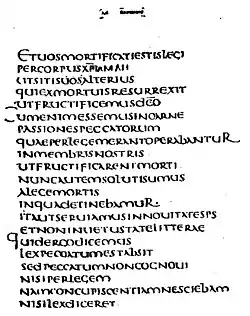 ETUOSMORTIFICATIESTISLEGI
PERCORPUSXPI
UTSITISUOSALTERIUS
QUIEXMORTUISRESURREXIT
UTFRUCTIFICEMUSDEO
ESSEMUSINCARNE
PASSIONESPECCATORUM
QUAEPERLEGEMERANTOPERABANTUR
INMEMBRISNOSTRIS
UTFRUCTIFICARENTMORTI
NUNCAUTEMSOLUTISUMUS
ALEGEMORTIS
INQUADETINEBAMUR
ITAUTSERUIAMUSINNOUITATESPS
ETNONINUETUSTATELITTERAE
QUIDERGODICEMUS
LEXPECCATUMESTABSIT
SEDPECCATUMNONCOGNOUI
NISIPERLEGEM
NAMCONCUPISCENTIAMNESCIEBAM
NISILEXDICERET